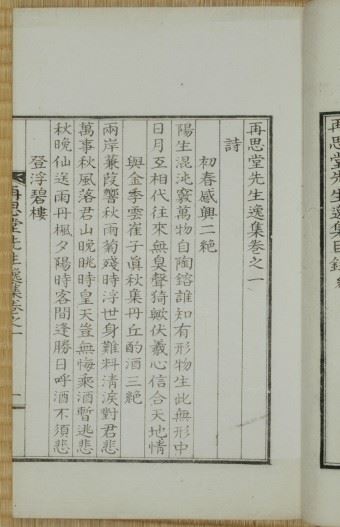 再思堂先生逸集卷之一
詩
初春感興二絶
陽生混沌竅萬物自陶鎔誰知有形物生此無形中
日月互相代往來無臭聲猗歟伏羲心信合天地情
與金季雲崔子眞秋集丹丘酌酒三絶
兩岸蒹葭響秋雨菊殘時浮世身難料淸淚對君悲
萬事秋風落君山晩眺時皇天豈無悔乘酒暫逃悲
秋晩仙送雨丹楓夕陽時客間逢勝日呼酒不須悲
登浮碧樓
再思堂先生逸集卷之一
一
再思堂先生逸集目錄